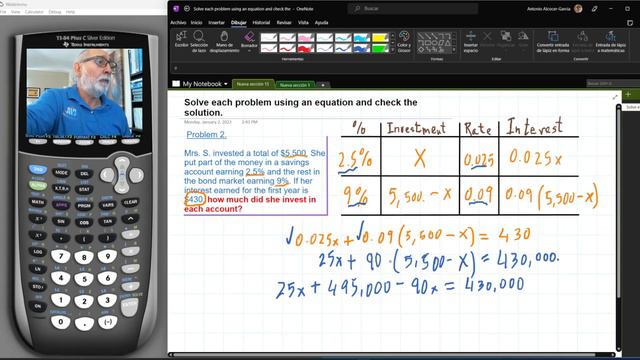 Solve each problem using an equation and check the - OneNote
Antonio Alcocer-Garcia
Archivo Inicio Insertar Dibujar Historial Revisar Vista Ayuda
Escribir Selección de lazo Mano de desplazamiento Borrador
Color y Grosor
Formas
Convertir entrada de lápiz en forma
Entrada de lápiz a matemáticas
Herramientas
TI-84 Plus C Silver Edition
TEXAS INSTRUMENTS
My Notebook
Nueva sección 11
Nueva sección 1
Solve each problem using an equation and check the
solution.
Monday, January 2, 2023 2:43 PM
Problem 2.
Mrs. S. invested a total of $5,500. She
put part of the money in a savings
account earning 2.5% and the rest in
the bond market earning 9%. If her
interest earned for the first year is
$430, how much did she invest in
each account?
% Investment Rate Interest
2.5% X 0.025 0.025x
9% 5,500.-X 0.09 0.09(5,500-x)
0.025x + 0.09(5,500-X) = 430
25x + 90·(5,500-X) = 430,000.
25x + 495,000 - 90x = 430,000